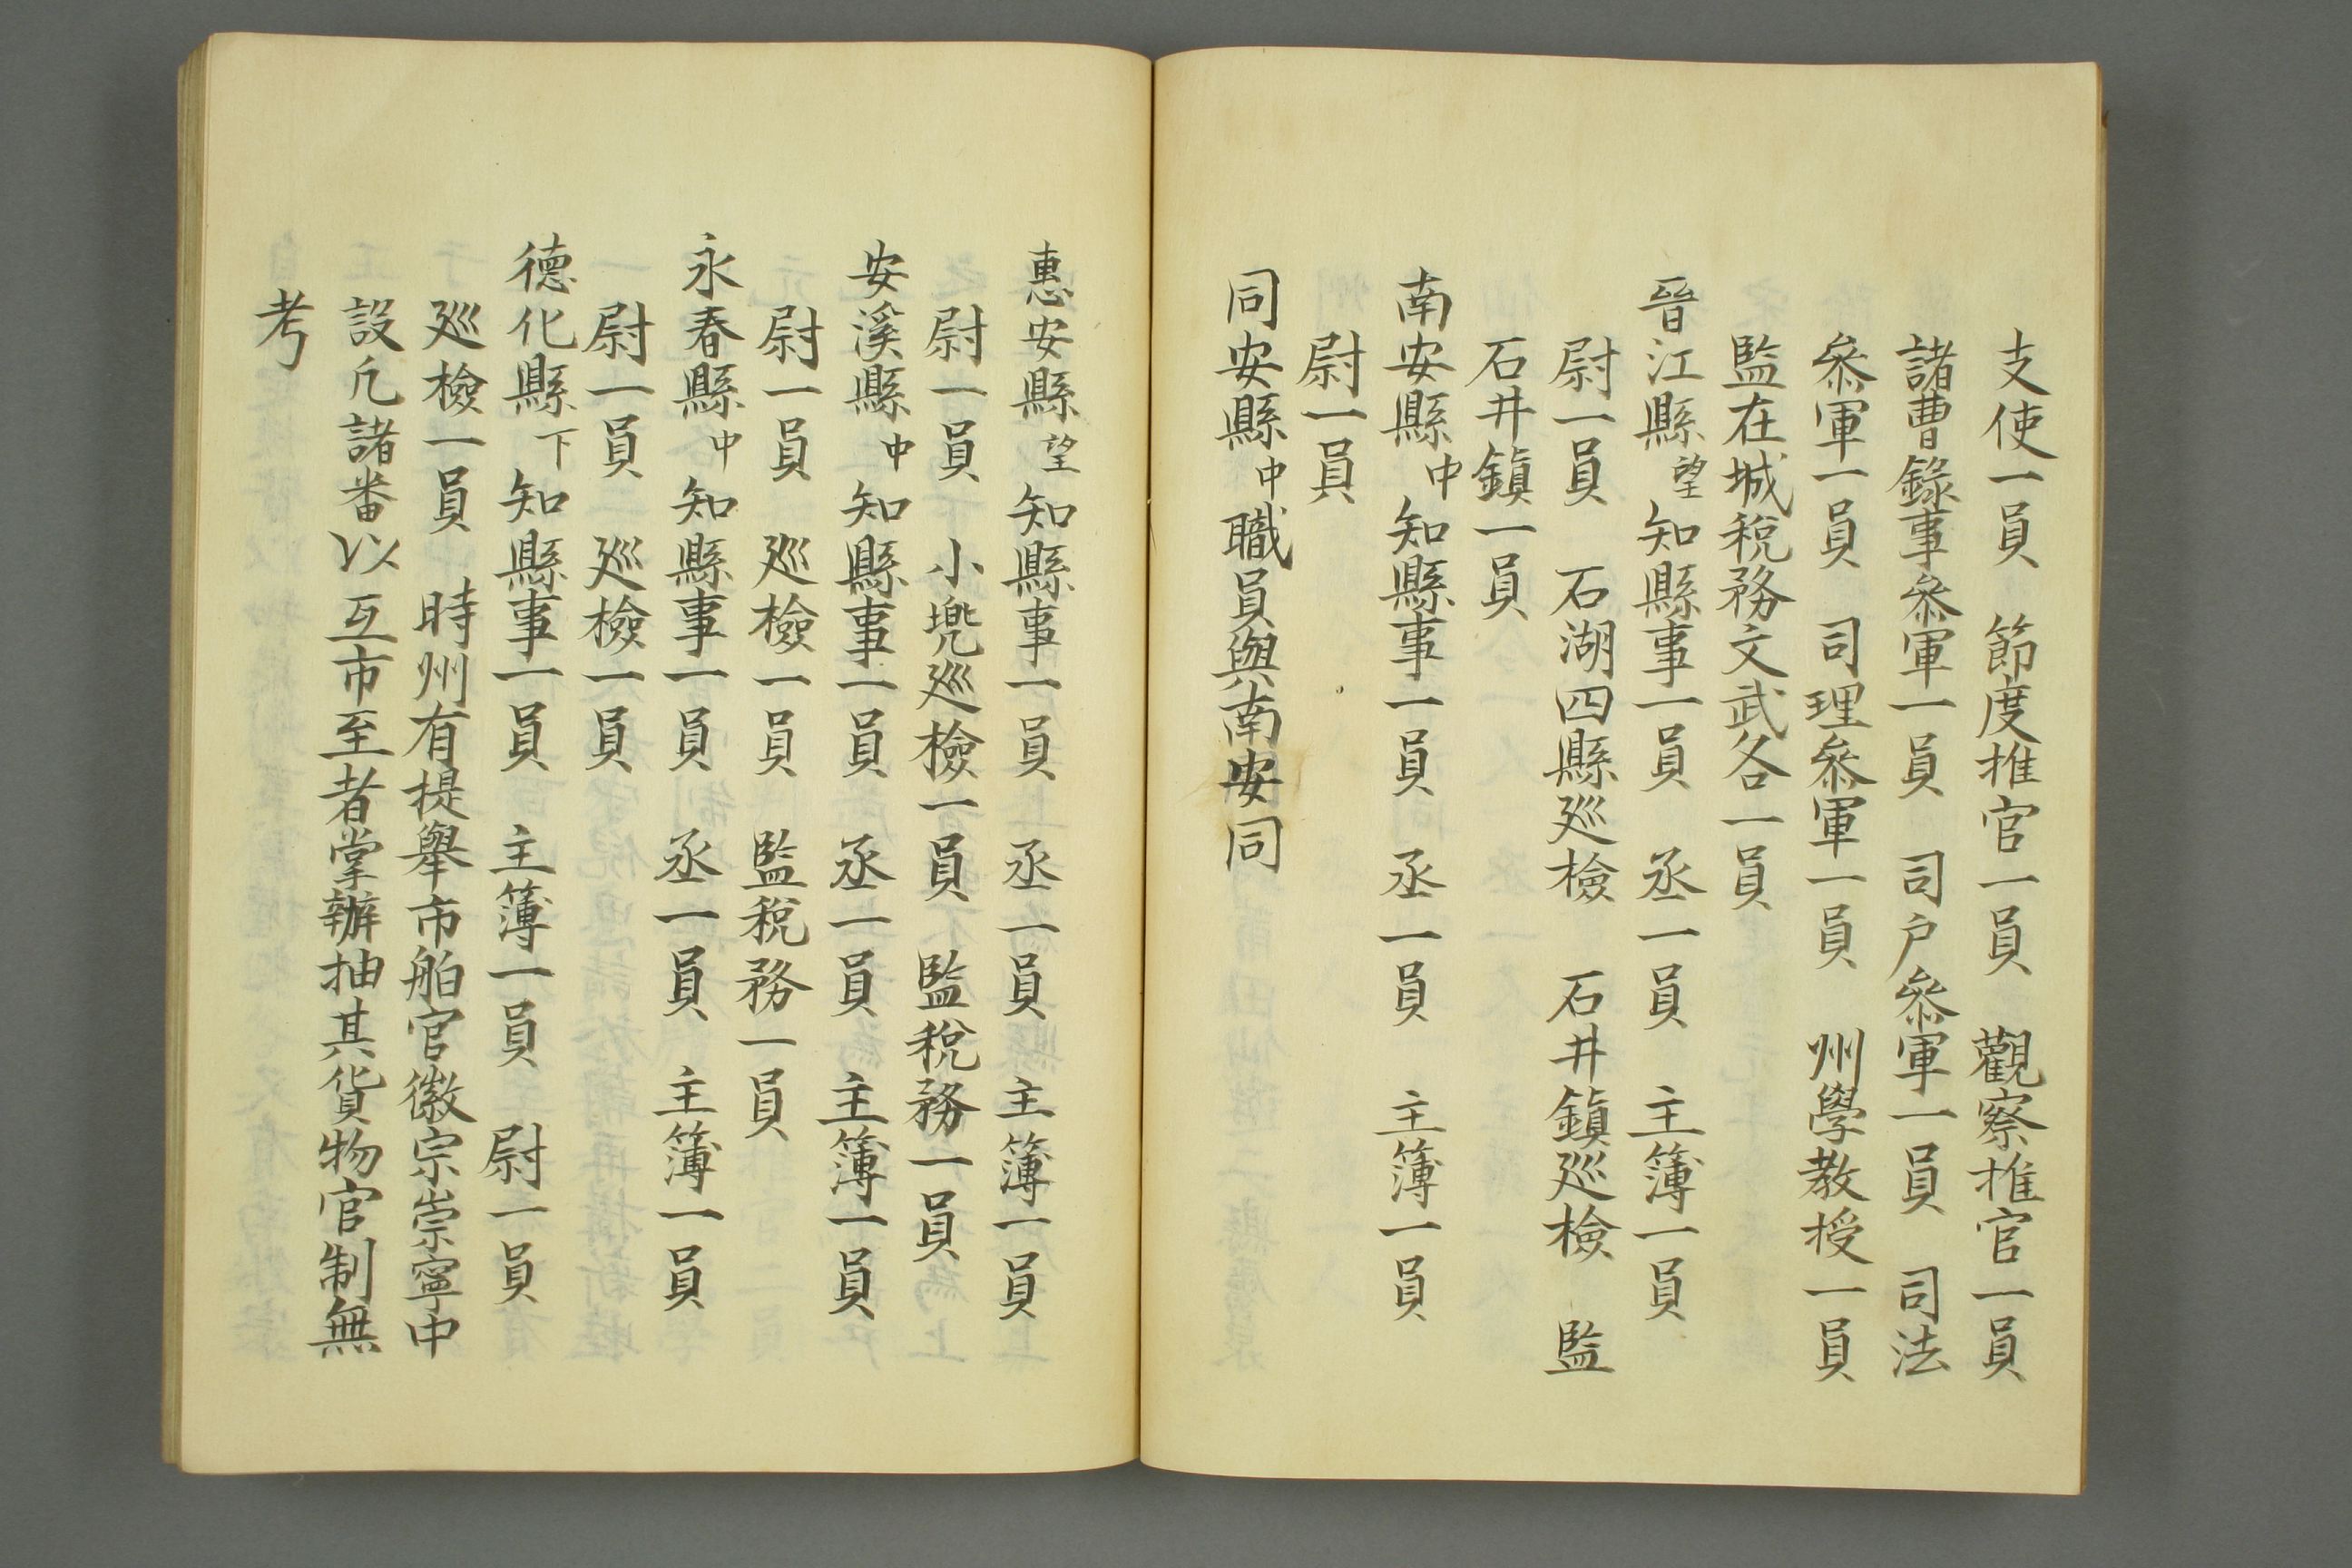 支使一員　節度推官一員　觀察推官一員
諸曹錄事叅軍一員　司户叅軍一員　司法
叅軍一員　司理叅軍一員　州學教授一員
監在城稅務文武各一員
晉江縣望知縣事一員　丞一員　主簿一員
尉一員　石湖四縣廵檢　石井鎮廵檢　監
石井鎮一員
南安縣中知縣事一員　丞一員　主簿一員
尉一員
同安縣中職員與南安同
惠安縣望知縣事一員　丞一員　主簿一員
尉一員　小兠廵檢一員　監稅務一員
安溪縣中知縣事一員　丞一員　主簿一員
尉一員　廵檢一員　監稅務一員
永春縣中知縣事一員　丞一員　主簿一員
尉一員　廵檢一員
德化縣下知縣事一員　主簿一員　尉一員
廵檢一員　時州有提舉市舶官徽宗崇寧中
設凢諸番以互市至者掌辦抽其貨物官制無
考